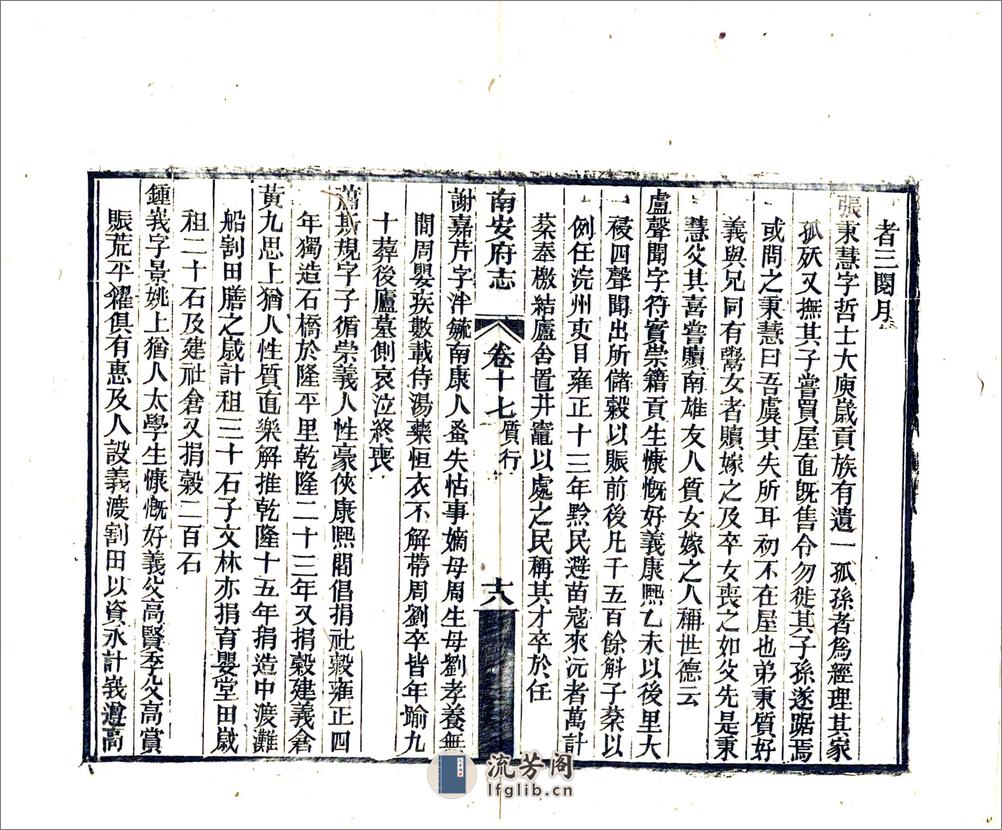 者三閱月
張秉慧字哲士大庾歲貢族有遺一孤孫者爲經理其家
孤歿又撫其子嘗買屋直旣售令勿徙其子孫遂踞焉
或問之秉慧曰吾虞其失所耳初不在屋也弟秉質好
義與兄同有鬻女者贖嫁之及卒女喪之如父先是秉
慧父其喜嘗贖南雄友人質女嫁之人稱世德云
盧聲聞字符實崇籍貢生慷慨好義康熙乙未以後里大
祲四聲聞出所儲穀以賑前後凡千五百餘斛子棻以
例任浣州吏目雍正十三年黔民避苗寇來沅者萬計
棻奉檄結廬舍置井竈以處之民稱其才卒於任
南安府志
卷十七 質行
十八
謝嘉芹字泮毓南康人蚤失怙事嫡母周生母劉孝養無
間周嬰疾數載侍湯藥恒衣不解帶周劉卒皆年踰九
十葬後廬墓側哀泣終喪
蕭斯規字子循崇義人性豪俠康熙間倡捐社穀雍正四
年獨造石橋於隆平里乾隆二十三年又捐穀建義倉
黃九思上猶人性質直樂解推乾隆十五年捐造中渡灘
船割田膳之歲計租三十石子文林亦捐育嬰堂田歲
租二十石及建社倉又捐穀二百石
鍾義字景姚上猶人太學生慷慨好義父高賢季父高賞
賑荒平糶俱有惠及人設義渡割田以資永計義遵高
流芳阁
lfglib.cn